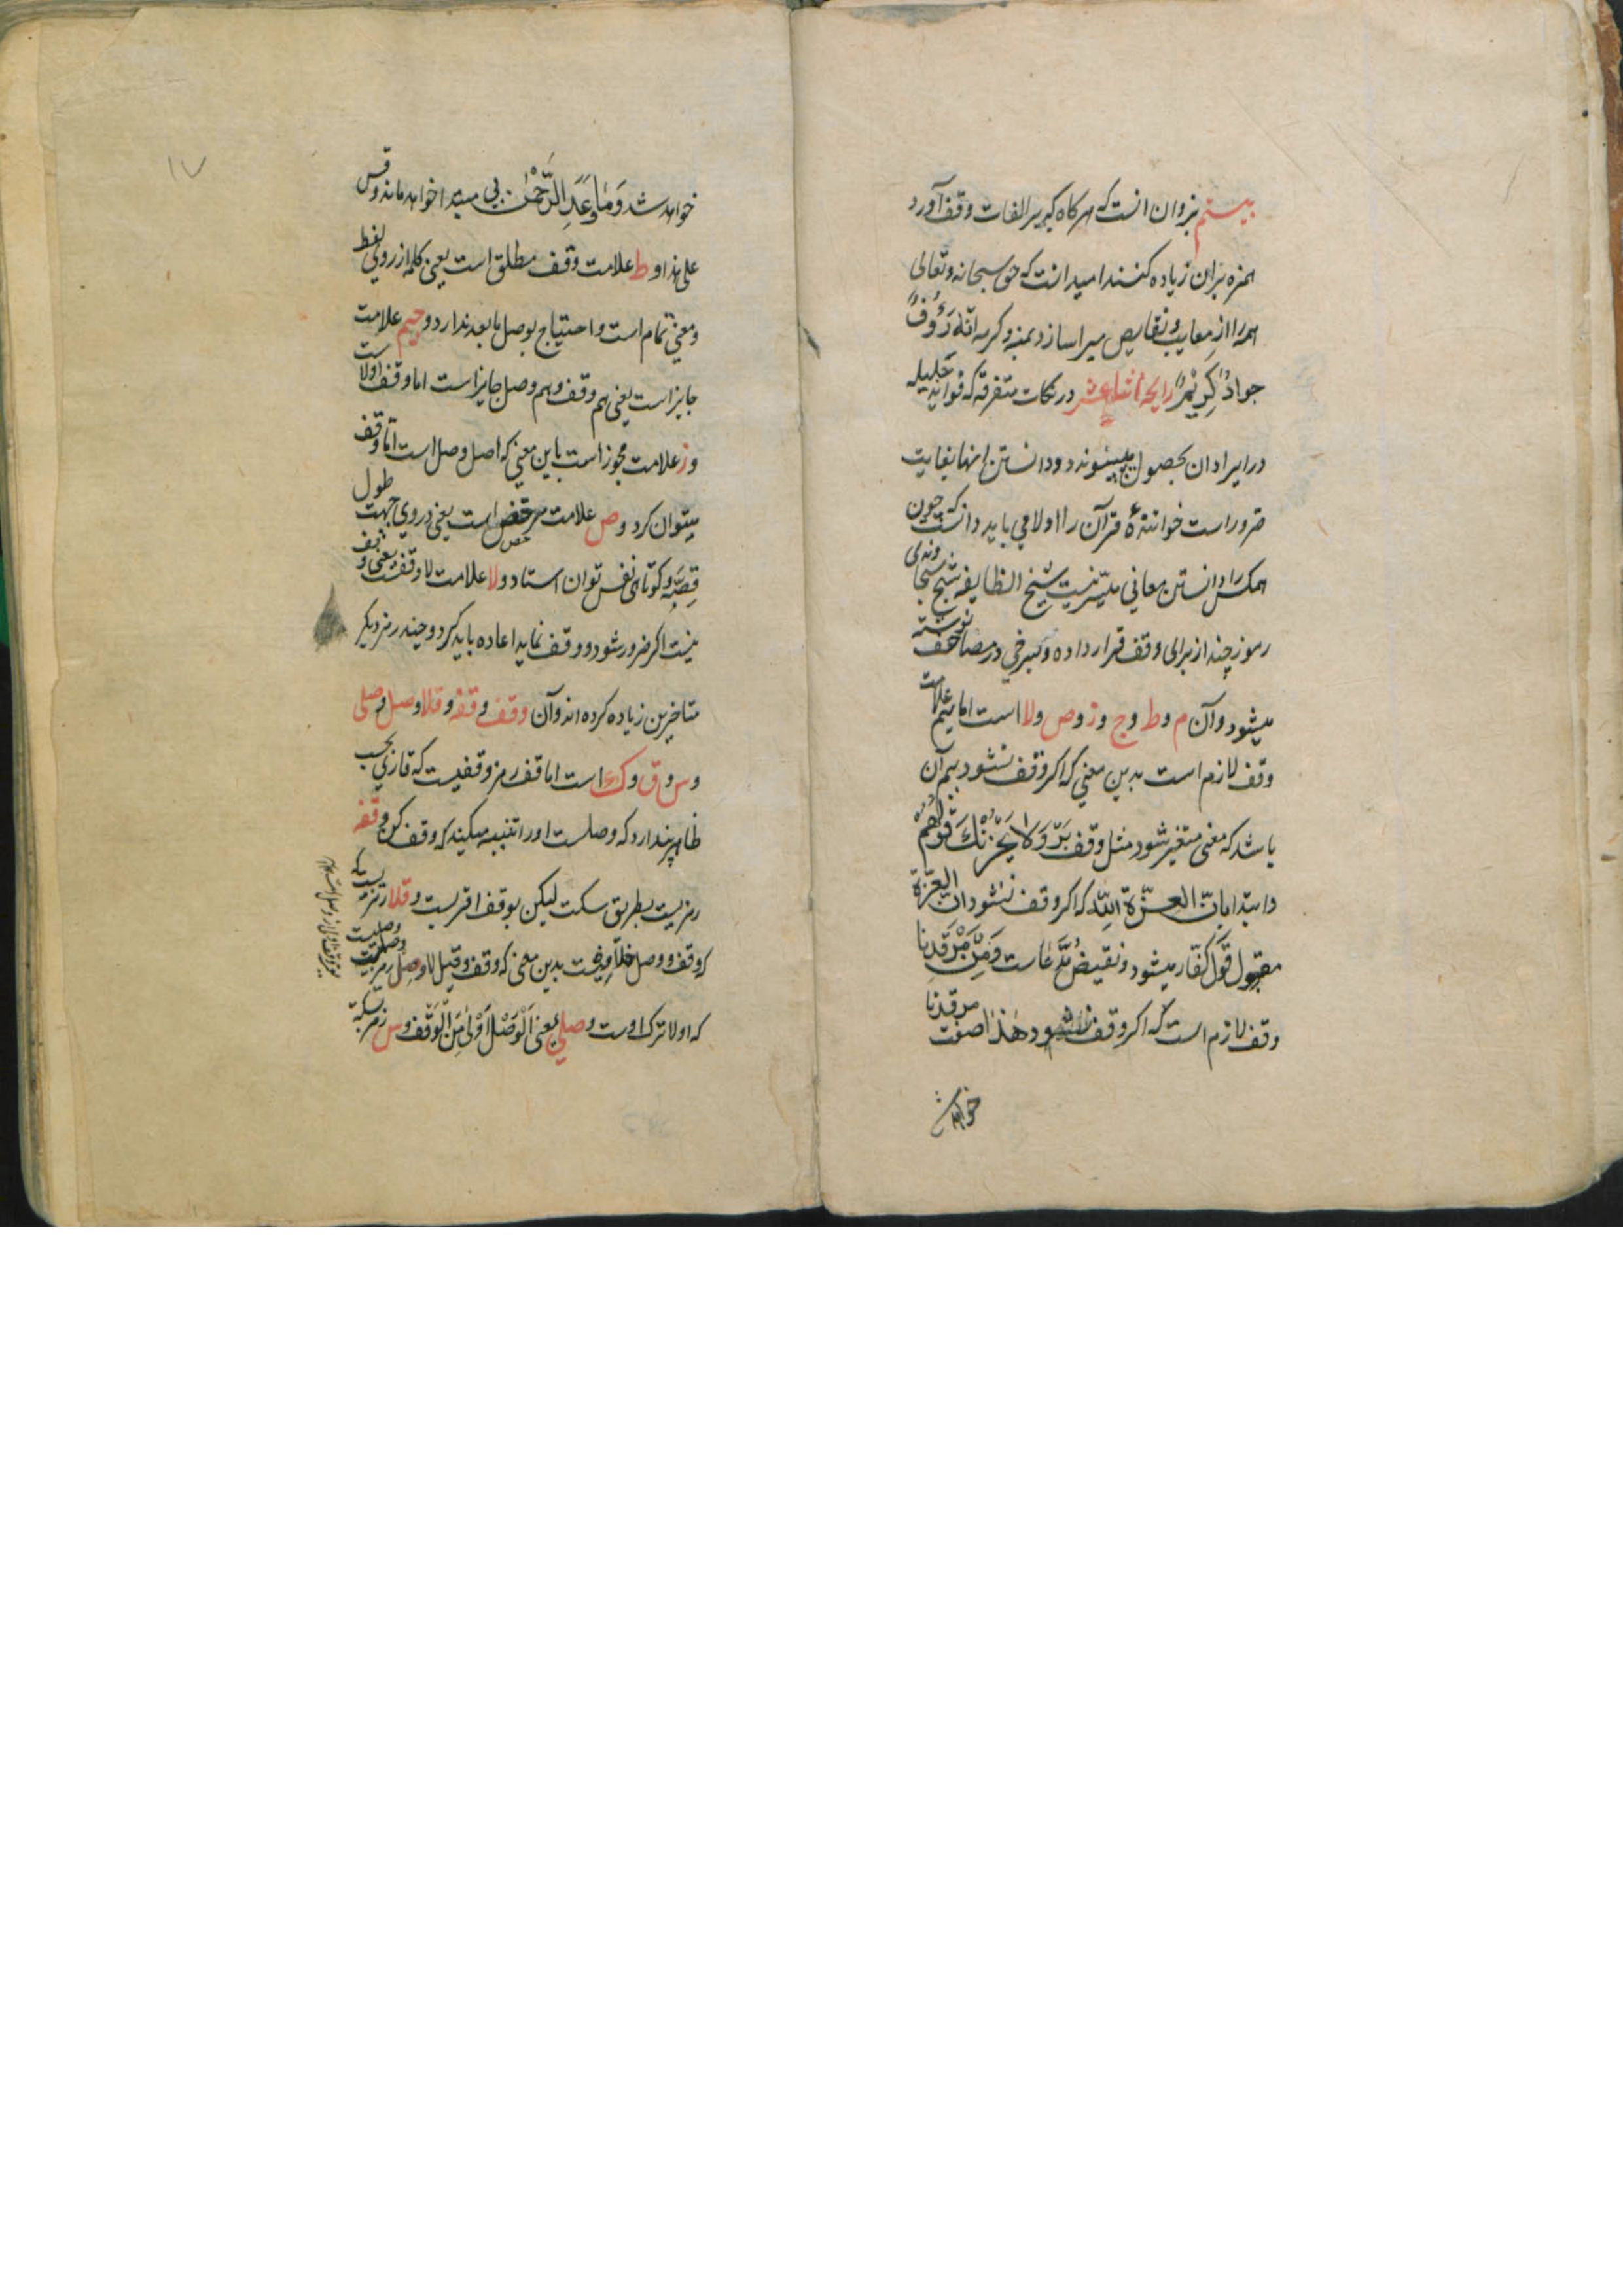 بیستم بزوان انست که هرکاه که بر الفات وقف آورد
همزه بران زیاده کنند امید انست که حق سبحانه وتعالی
همه را از معایب ونقایص مبرا سازد بمنه وکرمه انّه رَؤُفٌ
جوادٌ کَرِیْمٌ رایحه اثناعشر در نکات متفرقه که فواید جلیله
در ایراد ان بحصول پیوندد ودانستن انها بغایت
ضرور است خوانندهٔ قرآن را اولا می باید دانست که چون
همه کس را دانستن معانی میسّر نیست شیخ الطایفه شیخ سجاوندی
رموز چند از برای وقف قرار داده وسرخی در مصاحف نوشته
میشود وآن م وط وج وز وص ولا است اما میم علامت
وقف لازم است بدین معنی که اکر وقف نشود بیم آن
باشد که معنی متغیر شود مثل وقف بَرْ وَلَا یَحْزُنْكَ قَوْلُهُمْ
وابتدا باِنّ العِزّةَ لِلّٰه که اکر وقف نشود انّ العِزّة
مقول قول کفّار میشود ونقیض مدّعاست وَمِنْ مَرْقَدِنا
وقف لازم است که اکر وقف نشود هٰذا صفت مرقدنا
خواهد ش
١٧
خواهد شد وَمَا وَعَدَ الرَّحْمٰن بی مبتدا خواهد ماند وقس
علی هذا وط علامت وقف مطلق است یعنی کلمه از روی لفظ
ومعنی تمام است واحتیاج بوصل ما بعد ندارد وجیم علامت
جایز است یعنی هم وقف وهم وصل جایز است اما وقف اولاست
وز علامت مجوز است باین معنی که اصل وصل است امّا وقف
میتوان کرد وص علامت مرخص است یعنی در وی جهت طول
قِصّه وکوتاهی نفس توان استاد ولا علامت لا وقف است یعنی وقف
نیست اکر ضرور شود ووقف نماید اعاده باید کرد وچند رمز دیکر
متاخرین زیاده کرده اند وآن وقف وقفه وقلا وصل وصلی
وس وق وك است اما قف رمز وقفیست که قاری بحسب
ظاهر پندارد که وصلست او را تنبیه میکند که وقف کن وقفه
رمزیست بطریق سکت لیکن بوقف اقربست وقلا رمزیست که
که وقف ووصل خلافیست بدین معنی که وقف وقیل لا وصل رمز وصلیست
که اولا ترك اوست وصلی یعنی اَلْوَصْلُ اَوْلیٰ مِنَ الْوَقْف وس رمز سکته